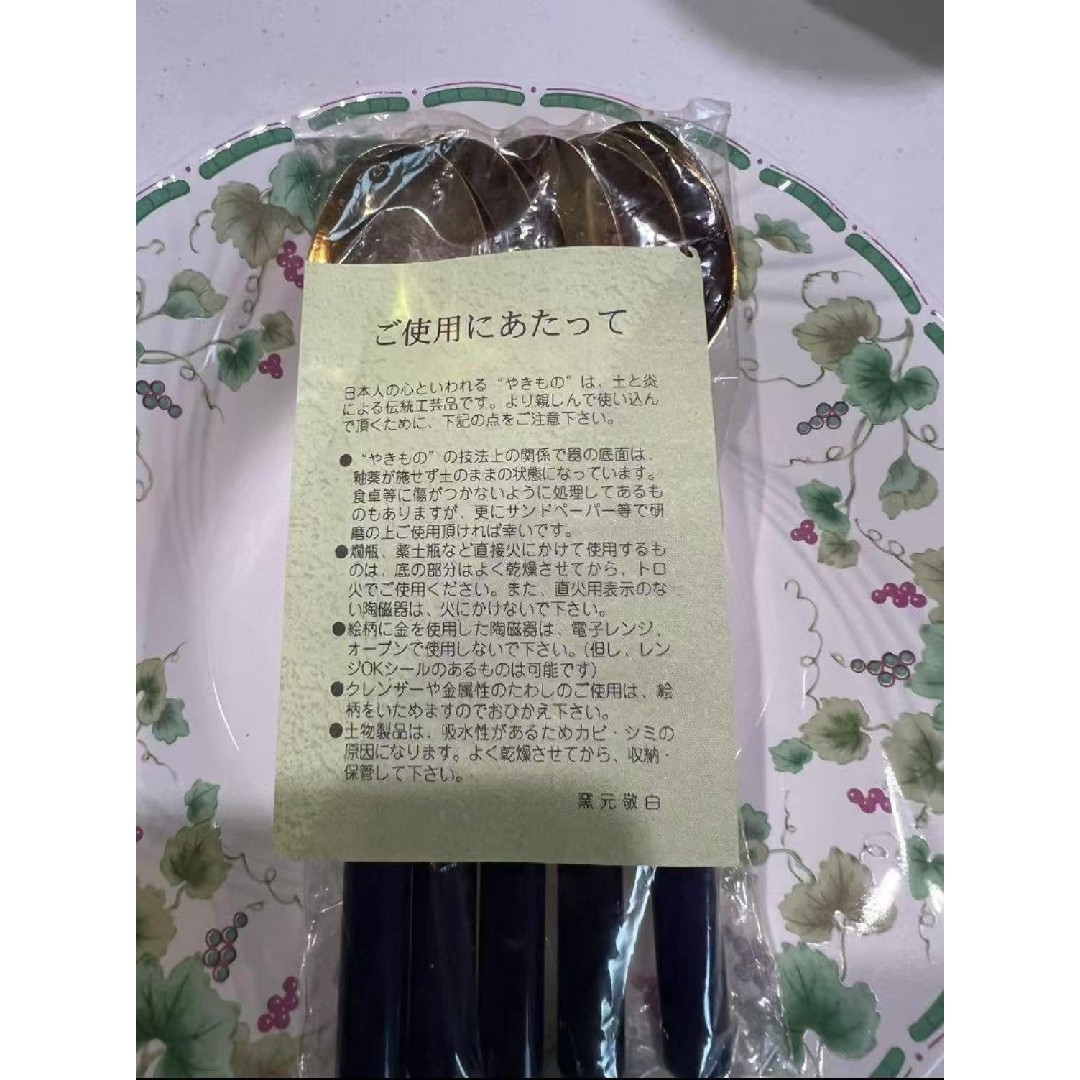 ご使用にあたって
日本人の心といわれる“やきもの”は、土と炎
による伝統工芸品です。より親しんで使い込ん
で頂くために、下記の点をご注意下さい。
●“やきもの”の技法上の関係で器の底面は、
釉薬が施せず土のままの状態になっています。
食卓等に傷がつかないように処理してあるも
のもありますが、更にサンドペーパー等で研
磨の上ご使用頂ければ幸いです。
●燗瓶、薬土瓶など直接火にかけて使用するも
のは、底の部分はよく乾燥させてから、トロ
火でご使用ください。また、直火用表示のな
い陶磁器は、火にかけないで下さい。
●絵柄に金を使用した陶磁器は、電子レンジ、
オーブンで使用しないで下さい。(但し、レン
ジOKシールのあるものは可能です)
●クレンザーや金属性のたわしのご使用は、絵
柄をいためますのでおひかえ下さい。
●土物製品は、吸水性があるためカビ・シミの
原因になります。よく乾燥させてから、収納・
保管して下さい。
窯元敬白